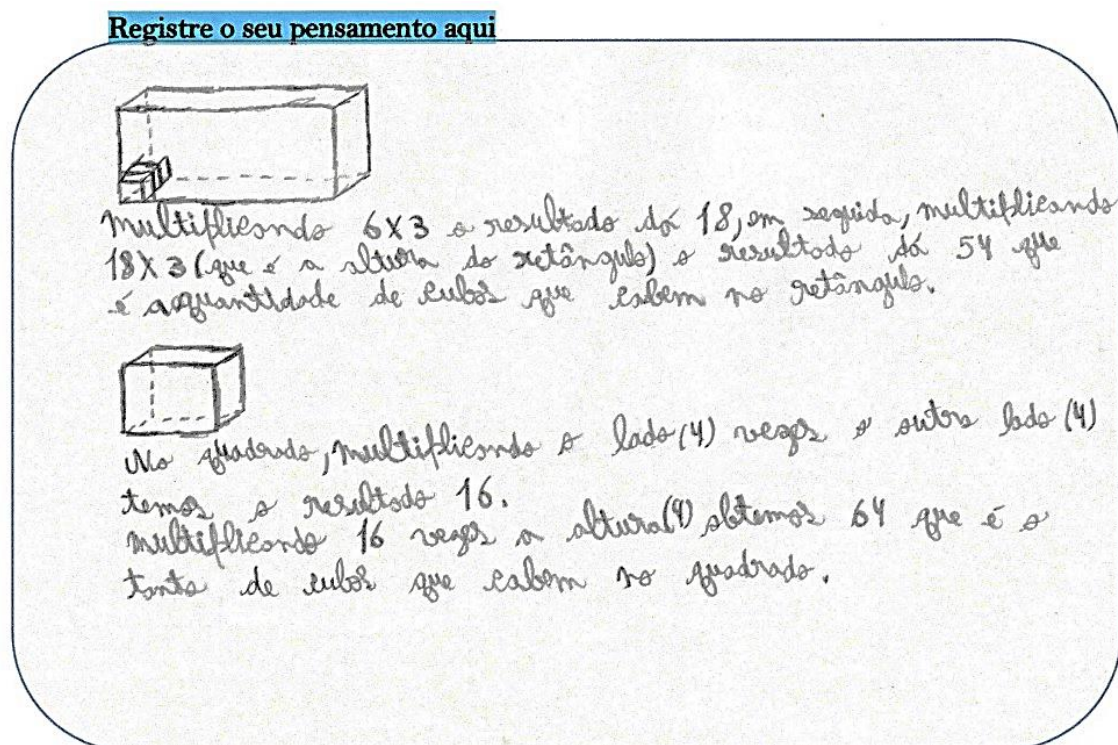 Registre o seu pensamento aqui
Multiplicando 6X3 o resultado dá 18, em seguida, multiplicando
18X3 (que é a altura do retângulo) o resultado dá 54 que
é a quantidade de cubos que cabem no retângulo.
No quadrado, multiplicando o lado (4) vezes o outro lado (4)
temos o resultado 16.
multiplicando 16 vezes a altura (4) obtemos 64 que é o
tanto de cubos que cabem no quadrado.